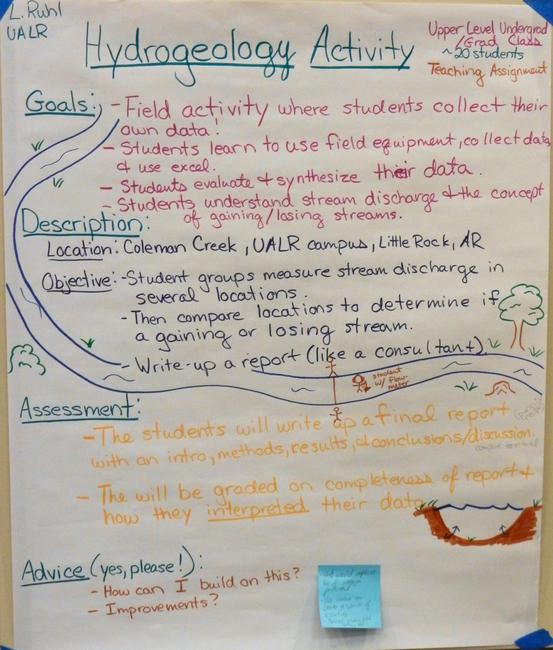 L. Ruhl
UALR
Hydrogeology Activity
Upper Level Undergrad
/Grad Class
~20 students
Teaching Assignment
Goals:
- Field activity where students collect their
own data!
- Students learn to use field equipment, collect data,
& use excel.
- Students evaluate & synthesize their data.
- Students understand stream discharge & the concept
of gaining/losing streams.
Description:
Location: Coleman Creek, UALR campus, Little Rock, AR
Objective: - Student groups measure stream discharge in
several locations.
- Then compare locations to determine if
a gaining or losing stream.
- Write-up a report (like a consultant).
student
w/ flow-
meter
Assessment:
- The students will write up a final report
with an intro, methods, results, & conclusions/discussion.
- The will be graded on completeness of report &
how they interpreted their data.
Advice (yes, please!):
- How can I build on this?
- Improvements?